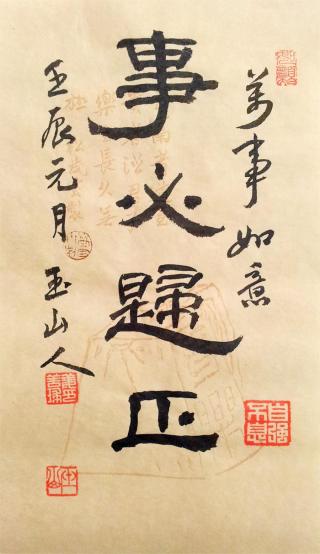 萬事如意
事必歸正
壬辰元月 玉山人
自强不息